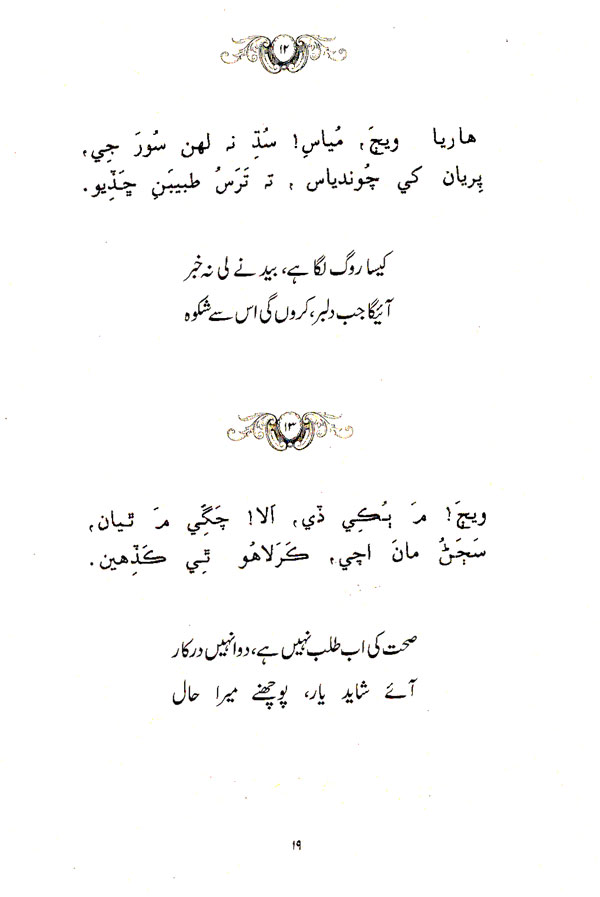 ۱۲
هاريا ويڄَ، مُياسِ! سُڌِ نہ لهن سُورَ جِي،
پِريان کي چُوندياس، تہ تَرَسُ طبيبَنِ ڇَڏِيو.
کیسا روگ لگا ہے، بید نے لی نہ خبر
آئیگا جب دلبر، کروں گی اس سے شکوہ
۱۳
ويڄَ! مَ ٻُڪِي ڏي، اَلا! چَڱِي مَ ٿيان،
سَڄَڻُ مانَ اچي، ڪَرَلاهُو ٿِي ڪَڏِهين.
صحت کی اب طلب نہیں ہے، دوا نہیں درکار
آئے شاید یار، پوچھنے میرا حال
۱۹